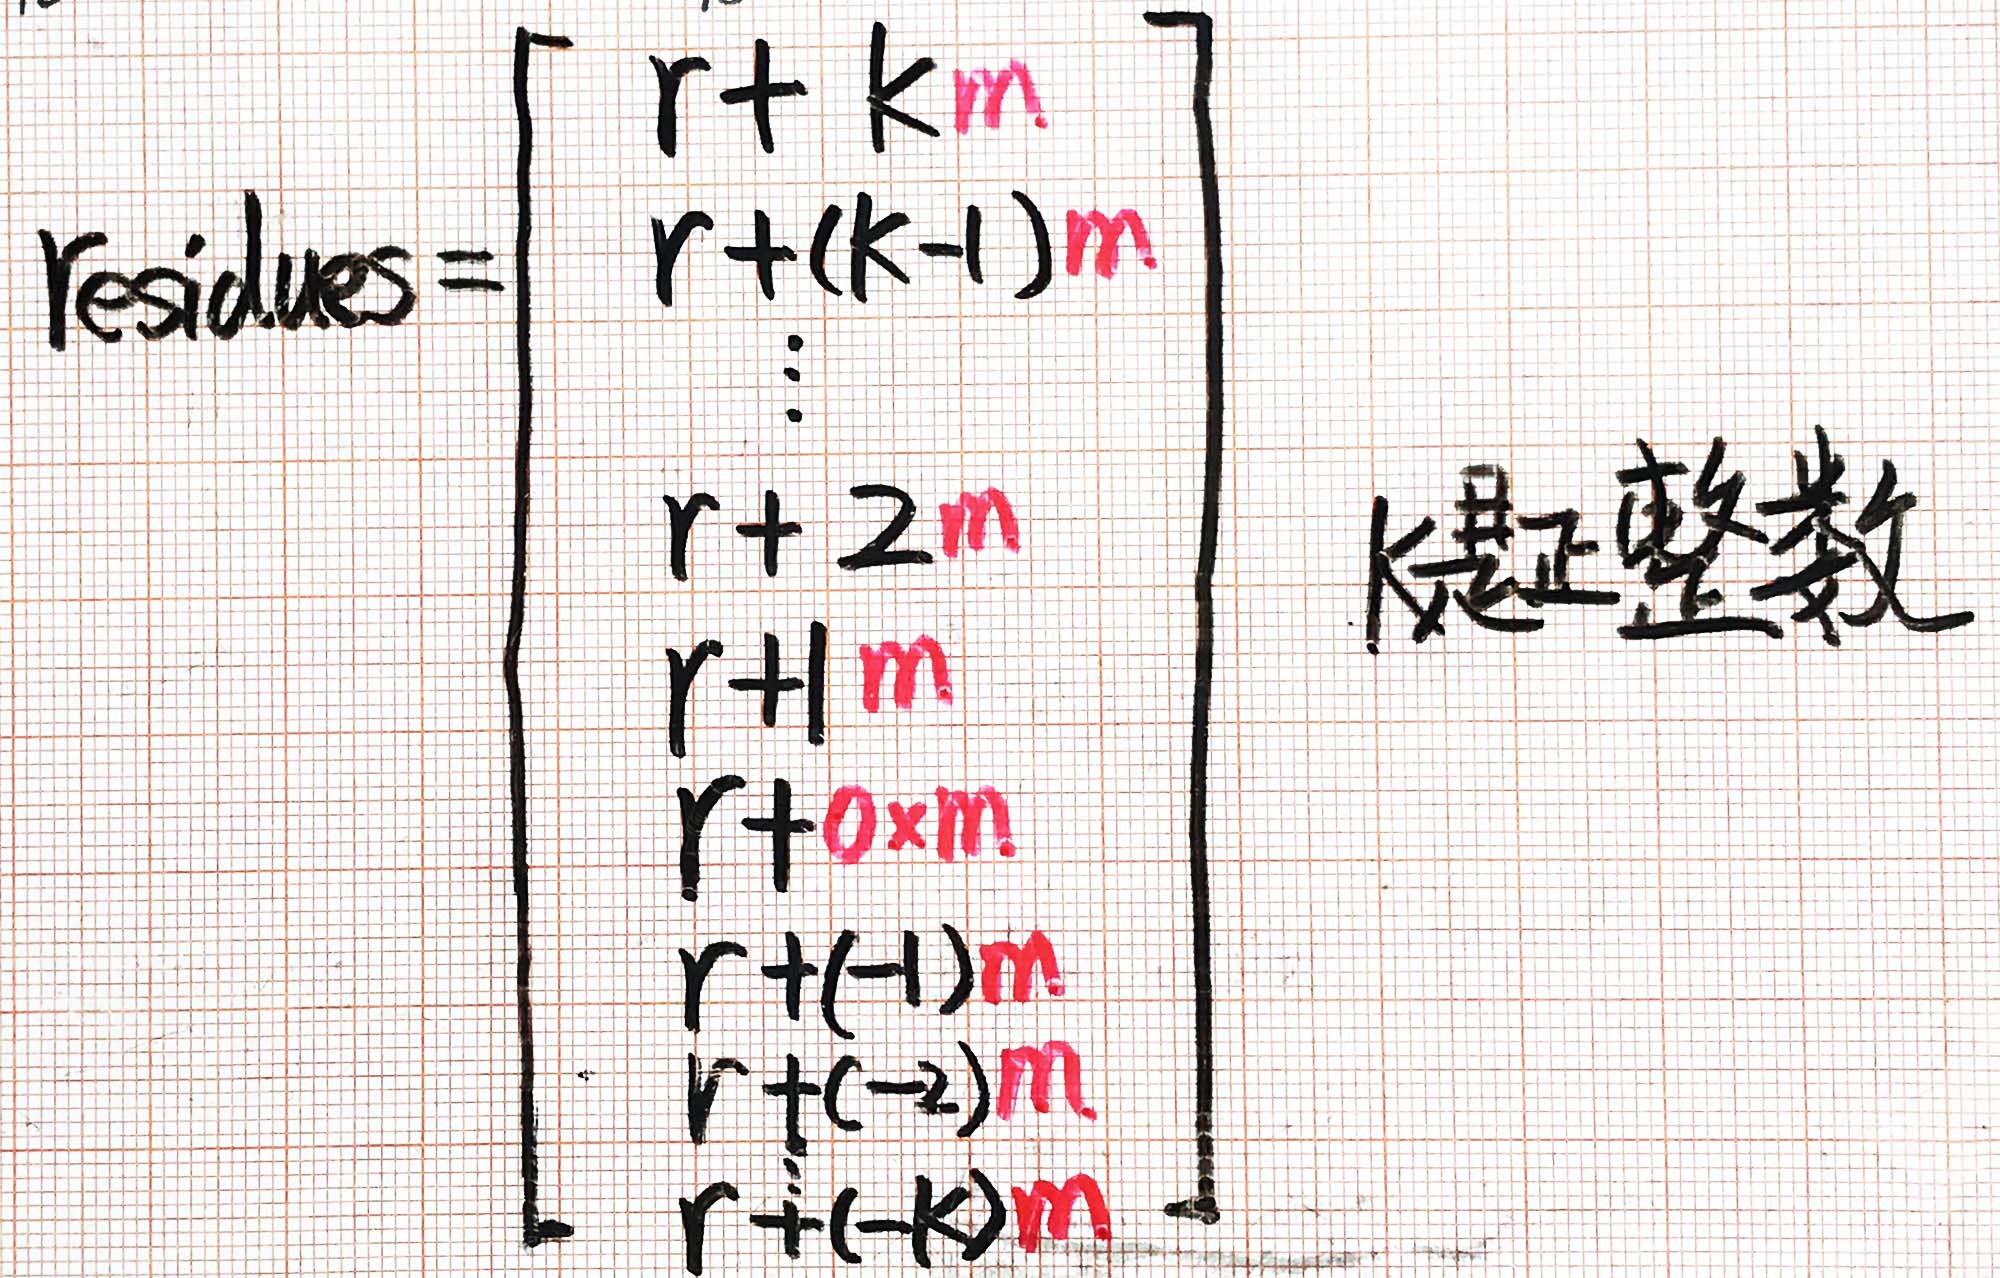 residues =
r + km
r + (k-1)m
⋮
r + 2m
r + 1m
r + 0×m
r + (-1)m
r + (-2)m
⋮
r + (-k)m
k是正整数